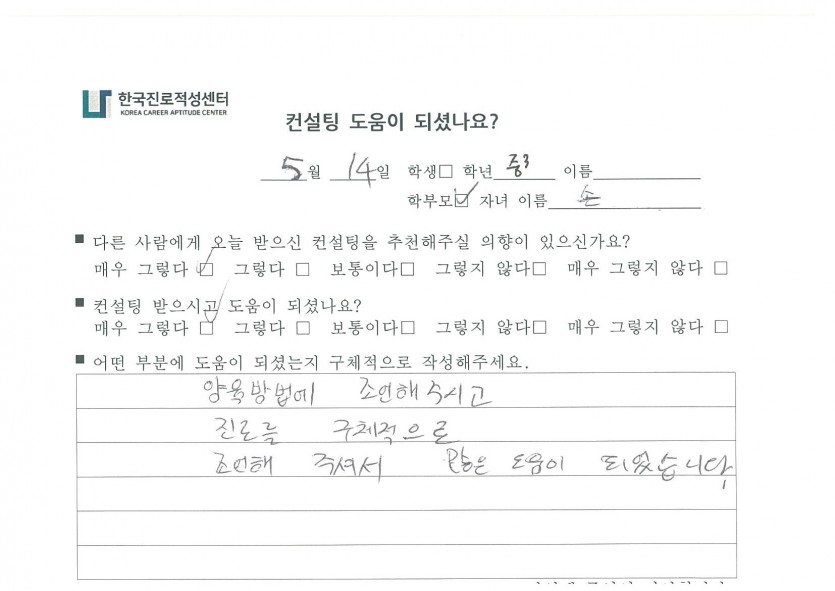 한국진로적성센터
KOREA CAREER APTITUDE CENTER
컨설팅 도움이 되셨나요?
5월 14일 학생□ 학년 중3 이름
학부모☑ 자녀 이름 손
■ 다른 사람에게 오늘 받으신 컨설팅을 추천해주실 의향이 있으신가요?
매우 그렇다 ☑ 그렇다 □ 보통이다□ 그렇지 않다□ 매우 그렇지 않다 □
■ 컨설팅 받으시고 도움이 되셨나요?
매우 그렇다 ☑ 그렇다 □ 보통이다□ 그렇지 않다□ 매우 그렇지 않다 □
■ 어떤 부분에 도움이 되셨는지 구체적으로 작성해주세요.
양육방법에 조언해주시고
진로를 구체적으로
조언해 주셔서 많은 도움이 되었습니다,